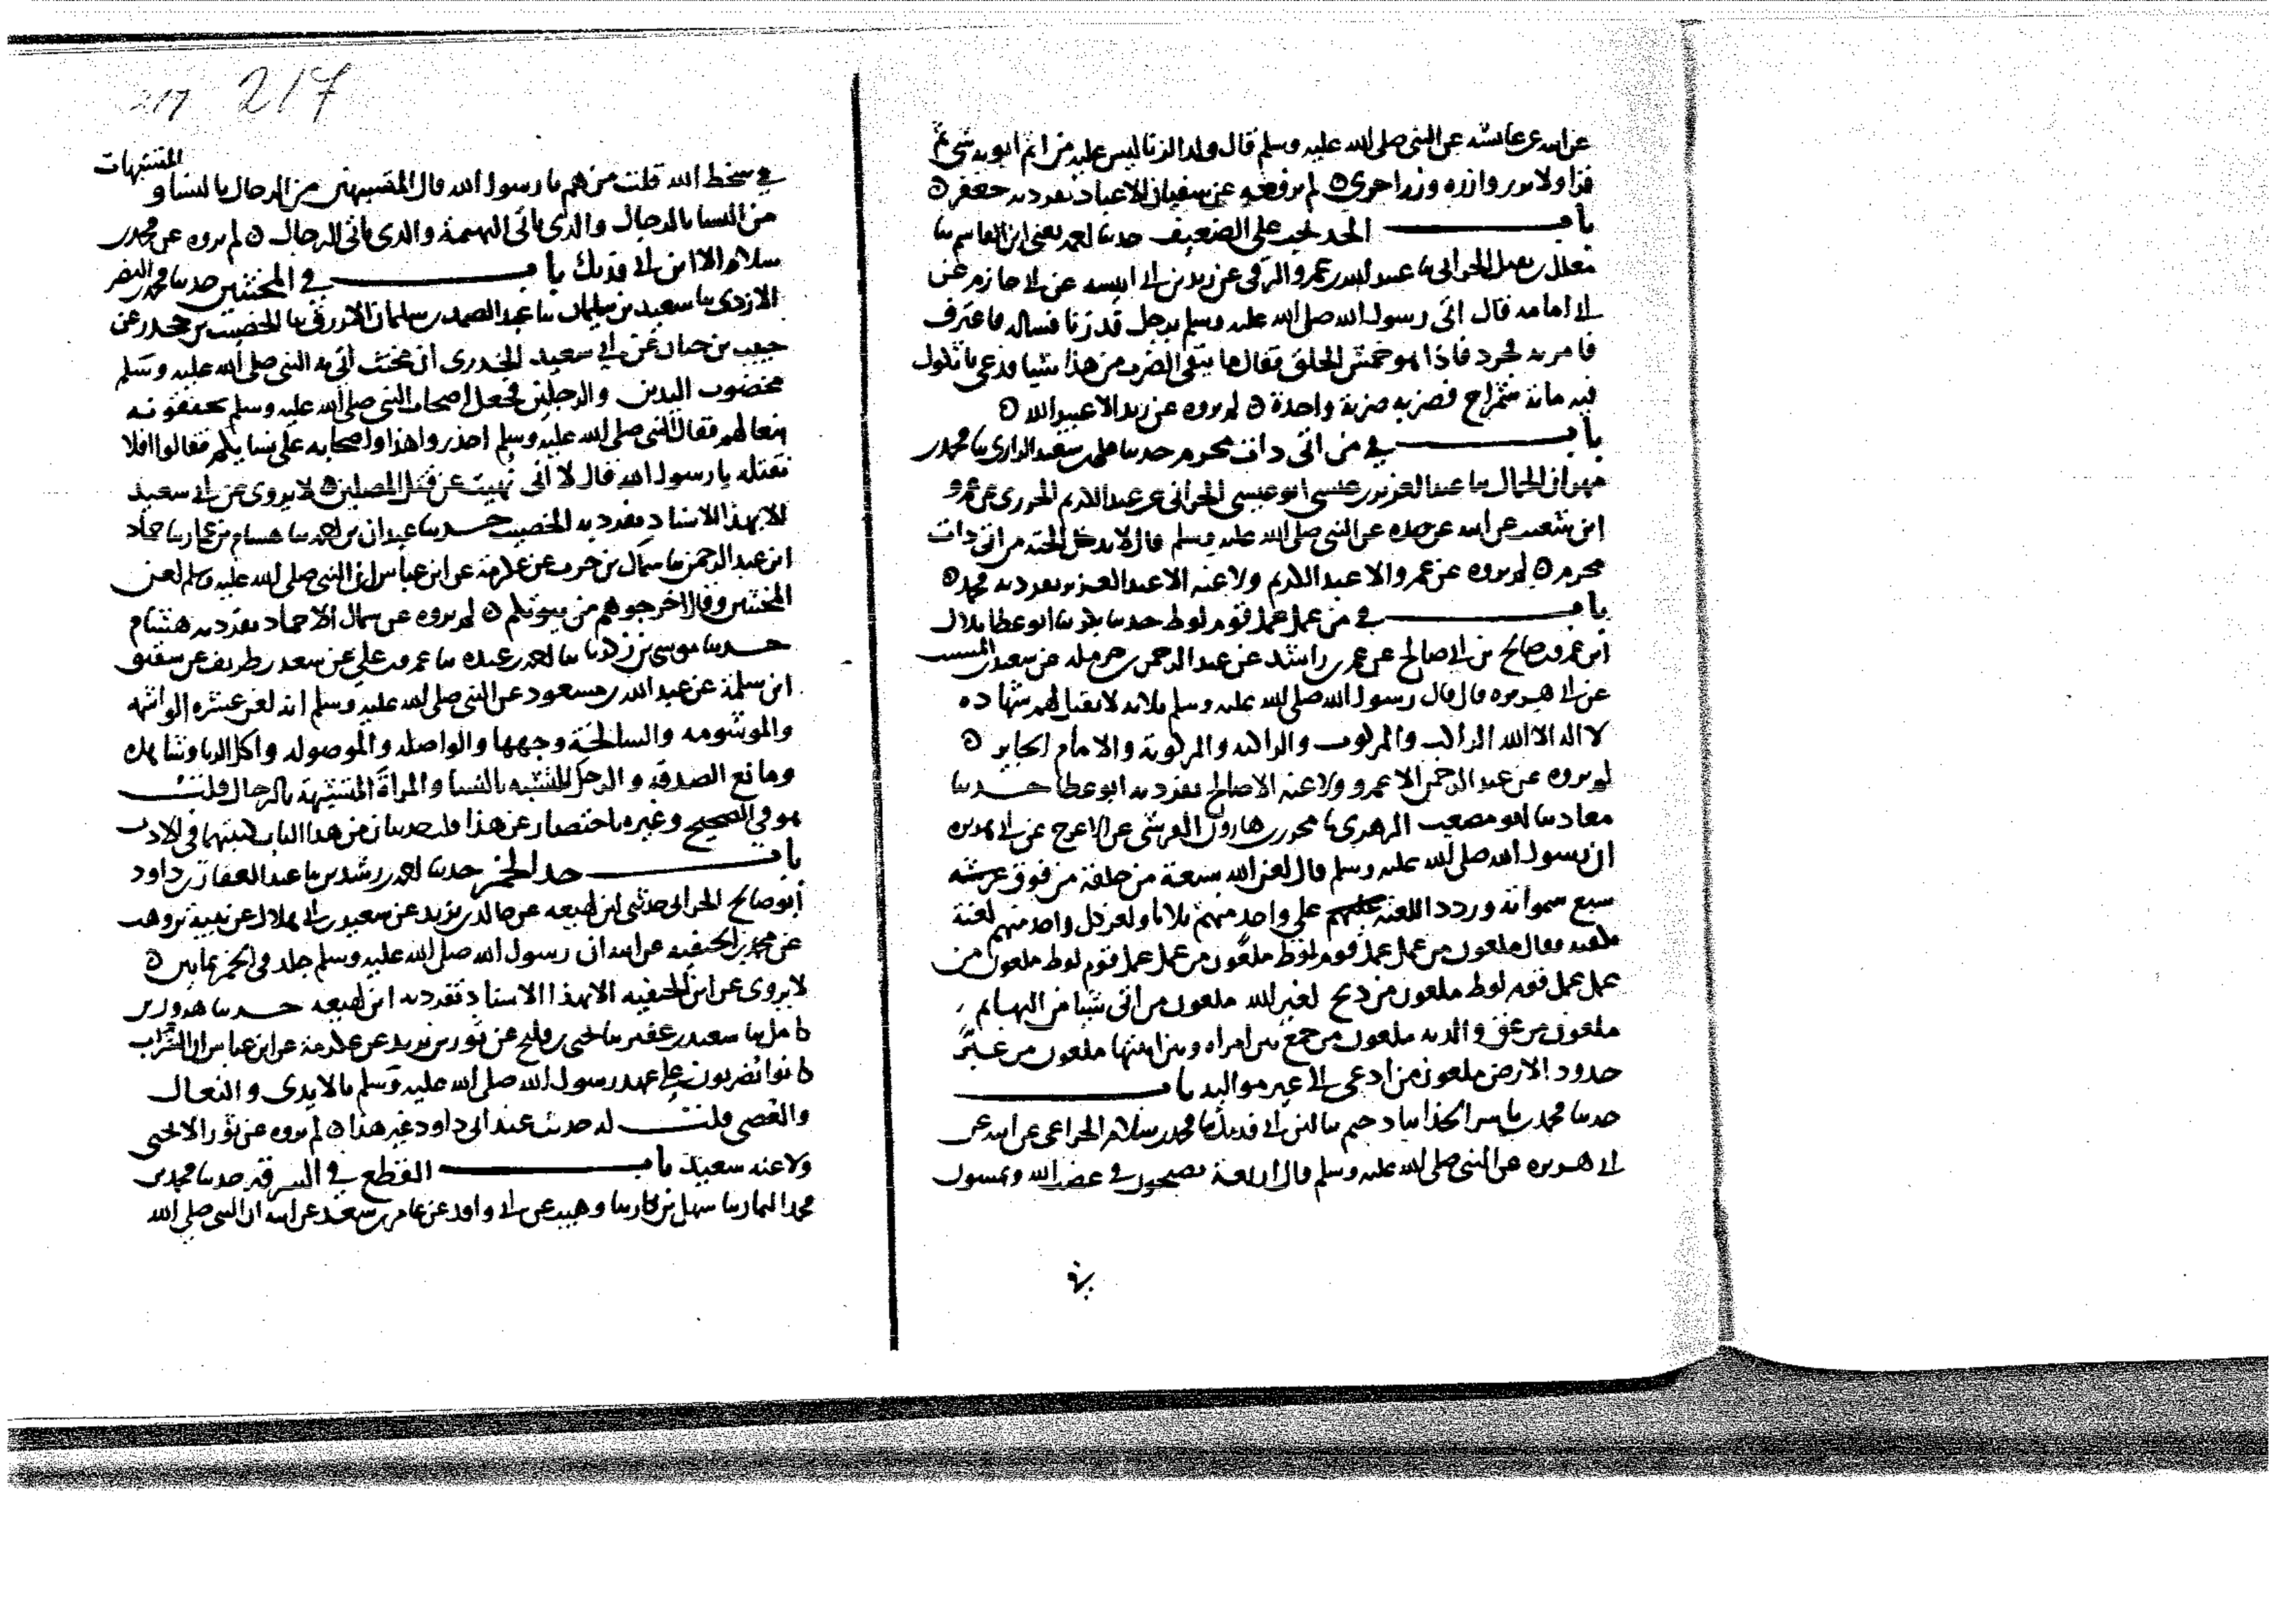 عن ابيه عن عائشة عن النبي صلى الله عليه وسلم قال ولد الزنا ليس عليه من اثم ابويه شي ثم
قرا ولا تزر وازرة وزر اخرى ه لم يرفعه عن سفيان الا عباد تفرد به جعفر ه
باب الحد يجب على الضعيف حدثنا احمد يعني ابن القاسم ثنا
معلل بن نفيل الحراني ثنا عبيد الله بن عمرو الرقي عن زيد بن ابي انيسه عن ابي حازم عن
ابي امامه قال اتى رسول الله صلى الله عليه وسلم برجل قد زنا فساله فاعترف
فامر به فجرد فاذا هو حمش الخلق فقال ما يبقى الضرب من هذا شيا فدعى باثكول
فيه مائة شمراخ فضربه ضربة واحدة ه لم يروه عن زيد الا عبيد الله ه
باب في من اتى ذات محرم حدثنا علي بن سعيد الرازي ثنا محمد بن
مهران الجمال ثنا عبد العزيز بن عيسى ابو عيسى الحراني عن عبد الكريم الجزري عن عمرو
ابن شعيب عن ابيه عن جده عن النبي صلى الله عليه وسلم قال لا يدخل الجنة من اتى ذات
محرم ه لم يروه عن عمرو الا عبد الكريم ولا عنه الا عبد العزيز تفرد به محمد ه
باب في من عمل عمل قوم لوط حدثنا بكر ثنا ابو عطا بلال
ابن عمرو صالح بن ابي صالح عن عمر بن راشد عن عبد الرحمن بن حرمله عن سعيد بن المسيب
عن ابي هريره قال قال رسول الله صلى الله عليه وسلم ثلاثه لا تقبل لهم شهاده
لا اله الا الله الراكب والمركوب والراكبه والمركوبة والامام الجاير ه
لم يروه عن عبد الرحمن الا عمر ولا عنه الا صالح تفرد به ابو عطا حدثنا
معاذ ثنا ابو مصعب الزهري ثنا محرر بن هارون القرشي عن الاعرج عن ابي هريره
ان رسول الله صلى الله عليه وسلم قال لعن الله سبعة من خلقه من فوق عرشه
سبع سمواته وردد اللعنة عليهم على واحد منهم ثلاثا ولعن كل واحد منهم لعنة
فقال ملعون من عمل عمل قوم لوط ملعون من عمل عمل قوم لوط ملعون من
عمل عمل قوم لوط ملعون من ذبح لغير الله ملعون من اتى شيا من البهايم
ملعون من عق والديه ملعون من جمع بين امراه وبين ابنتها ملعون من غير
حدود الارض ملعون من ادعى الى غير مواليه باب
حدثنا محمد بن ثنا دحيم ثنا ابن ابي فديك ثنا محمد بن سلام الخزاعي عن ابيه عن
ابي هريره عن النبي صلى الله عليه وسلم قال اربعة يصبحون في غضب الله ويمسون
في
217 217
في سخط الله قلت من هم يا رسول الله قال المتشبهين من الرجال بالنساء و المتشبهات
من النسا بالرجال والذي ياتي البهيمة والذي ياتي الرجال ه لم يروه عن محمد بن
سلام الا ابن ابي فديك باب في المخنثين حدثنا محمد بن النضر
الازدي ثنا سعيد بن سليمان ثنا عبد الصمد بن سليمان الازرق ثنا الخصيب بن جحدر عن
حبيب بن حيان عن ابي سعيد الخدري ان مخنث اتي به النبي صلى الله عليه وسلم
مخضوب اليدين والرجلين فجعل اصحاب النبي صلى الله عليه وسلم يخفقونه
بنعالهم فقال النبي صلى الله عليه وسلم احذروا هذا واصحابه على نسايكم فقالوا افلا
نقتله يا رسول الله قال لا اني نهيت عن قتل المصلين ه لا يروى عن ابي سعيد
الا بهذا الاسناد تفرد به الخصيب حدثنا عبدان بن احمد ثنا هشام بن عمار ثنا حماد
ابن عبد الرحمن ثنا سماك بن حرب عن عكرمة عن ابن عباس ان النبي صلى الله عليه وسلم لعن
المخنثين وقال اخرجوهم من بيوتكم ه لم يروه عن سماك الا حماد تفرد به هشام
حدثنا موسى بن زكريا ثنا احمد بن عبده ثنا عمر بن علي عن سعد بن طريف عن شقيق
ابن سلمة عن عبد الله بن مسعود عن النبي صلى الله عليه وسلم انه لعن عشره الواشمه
والموشومه والسالخة وجهها والواصله والموصوله واكل الربا وشاهده
ومانع الصدقه والرجل المتشبه بالنسا والمراة المتشبهة بالرجال قلت
هو في الصحيح وغيره باختصار عن هذا قلت حديثان من هذا الباب كتبتهما في الادب
باب حد الخمر حدثنا احمد بن رشدين ثنا عبد الغفار بن داود
ابو صالح الحراني حدثني ابن لهيعه عن خالد بن يزيد عن سعيد بن ابي هلال عن نبيه بن وهب
عن محمد بن الحنفيه عن ابيه ان رسول الله صلى الله عليه وسلم جلد في الخمر ثمانين ه
لا يروى عن ابن الحنفيه الا بهذا الاسناد تفرد به ابن لهيعه حدثنا هارون بن
كامل ثنا سعيد بن عفير ثنا يحيى بن فليح عن ثور بن يزيد عن عكرمة عن ابن عباس ان الشراب
كانوا يضربون على عهد رسول الله صلى الله عليه وسلم بالايدي والنعال
والعصي قلت له حديث عند ابي داود غير هذا ه لم يروه عن ثور الا يحيى
ولا عنه سعيد باب القطع في السرقة حدثنا محمد بن
محمد التمار ثنا سهل بن بكار ثنا وهيب عن ابي واقد عن عامر بن سعد عن ابيه ان النبي صلى الله